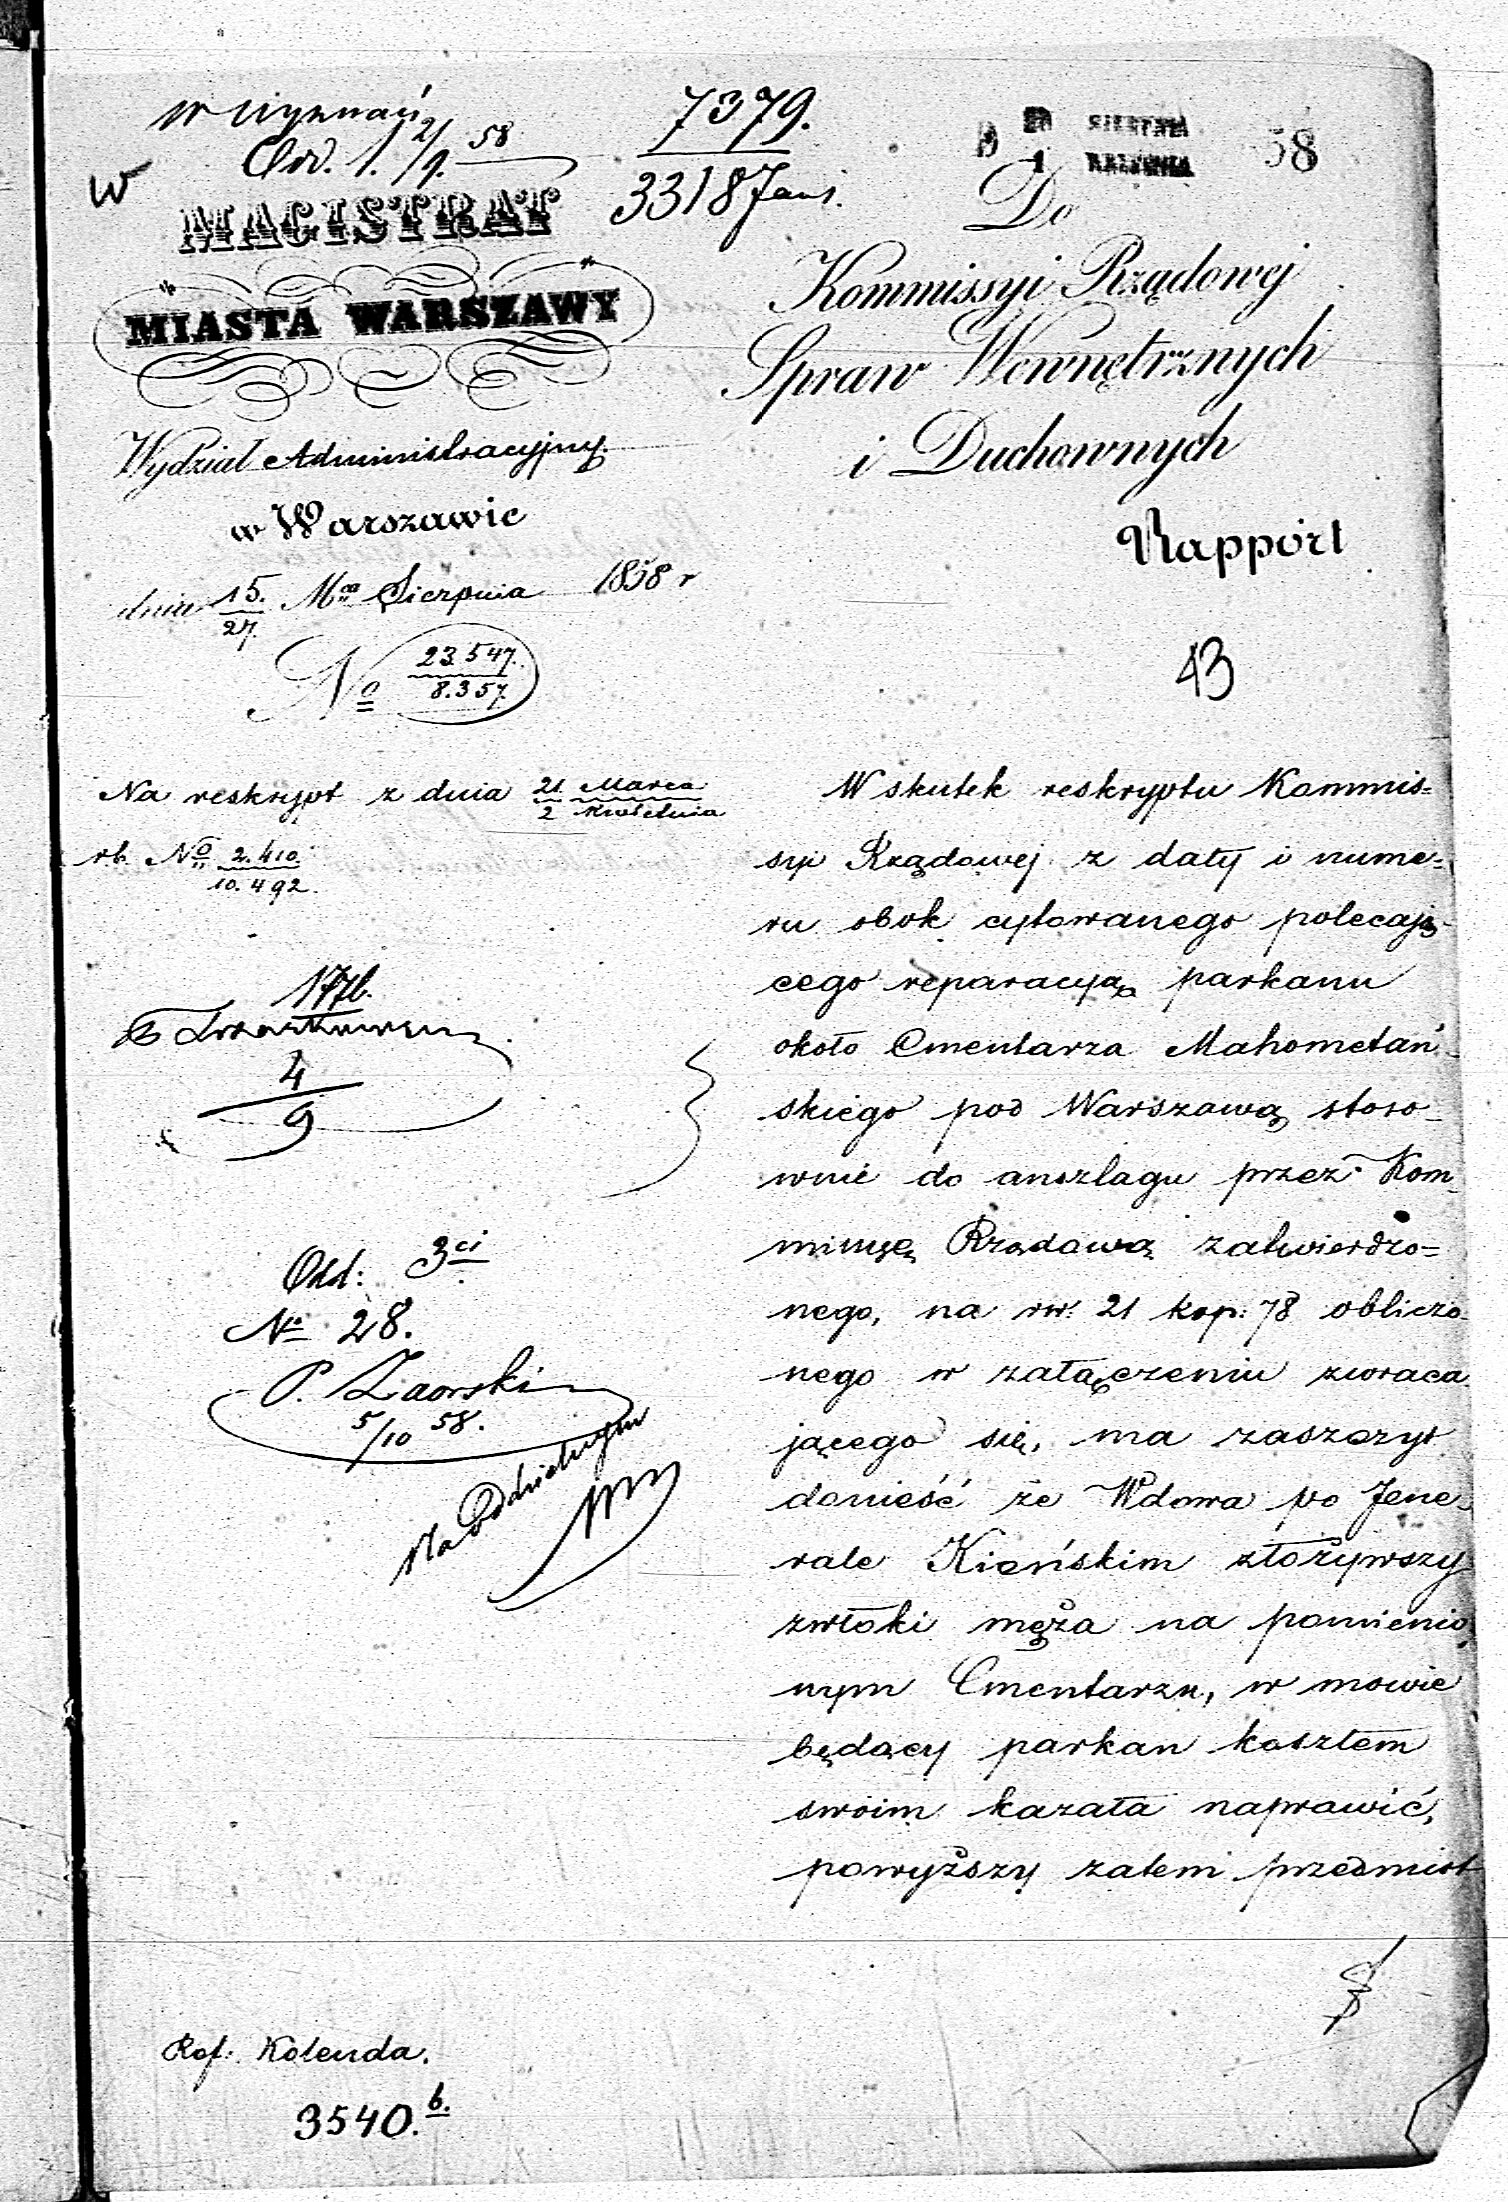 7379.
3318 Jani.
58
w
MAGISTRAT
MIASTA WARSZAWY
Wydział Administracyjny.
w Warszawie
dnia 15./27. Mca Sierpnia 1858 r
No 23.547./8.357.
Do
Kommissyi Rządowej
Spraw Wewnętrznych
i Duchownych
Rapport
43
Na reskrypt z dnia 21 Marca/2 Kwietnia
rb. No 2.410./10.492.
177b.
4/9
Odd: 3ci
No 28.
P. Zaorski
5/10 58.
Na oddzielnym
W skutek reskryptu Kommis=
syi Rządowej z daty i nume=
ru obok cytowanego polecają-
cego reparacyą parkanu
około Cmentarza Mahometań-
skiego pod Warszawą stoso-
wnie do anszlagu przez Kom-
missyę Rządową zatwierdzo=
nego, na rs. 21 kop: 78 obliczo-
nego w załączeniu zwraca
jącego się, ma zaszczyt
donieść że Wdowa po Jene-
rale Kiońskim złożywszy
zwłoki męża na pomienio
nym Cmentarzu, w mowie
będący parkan kosztem
swoim kazała naprawić,
powyższy zatem przedmiot
Ref: Kolenda.
3540.b.